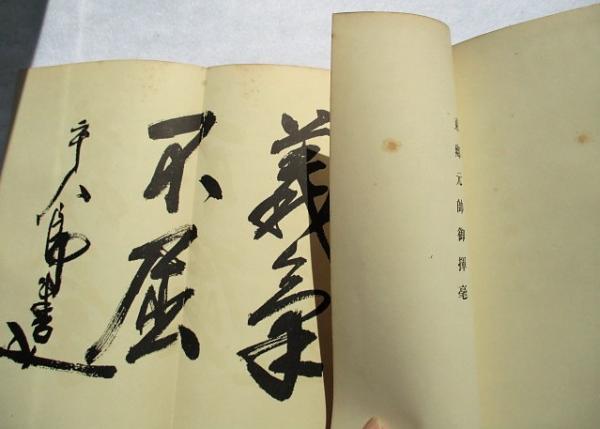 東郷元帥御揮毫
義氣
不屈
平八郎書